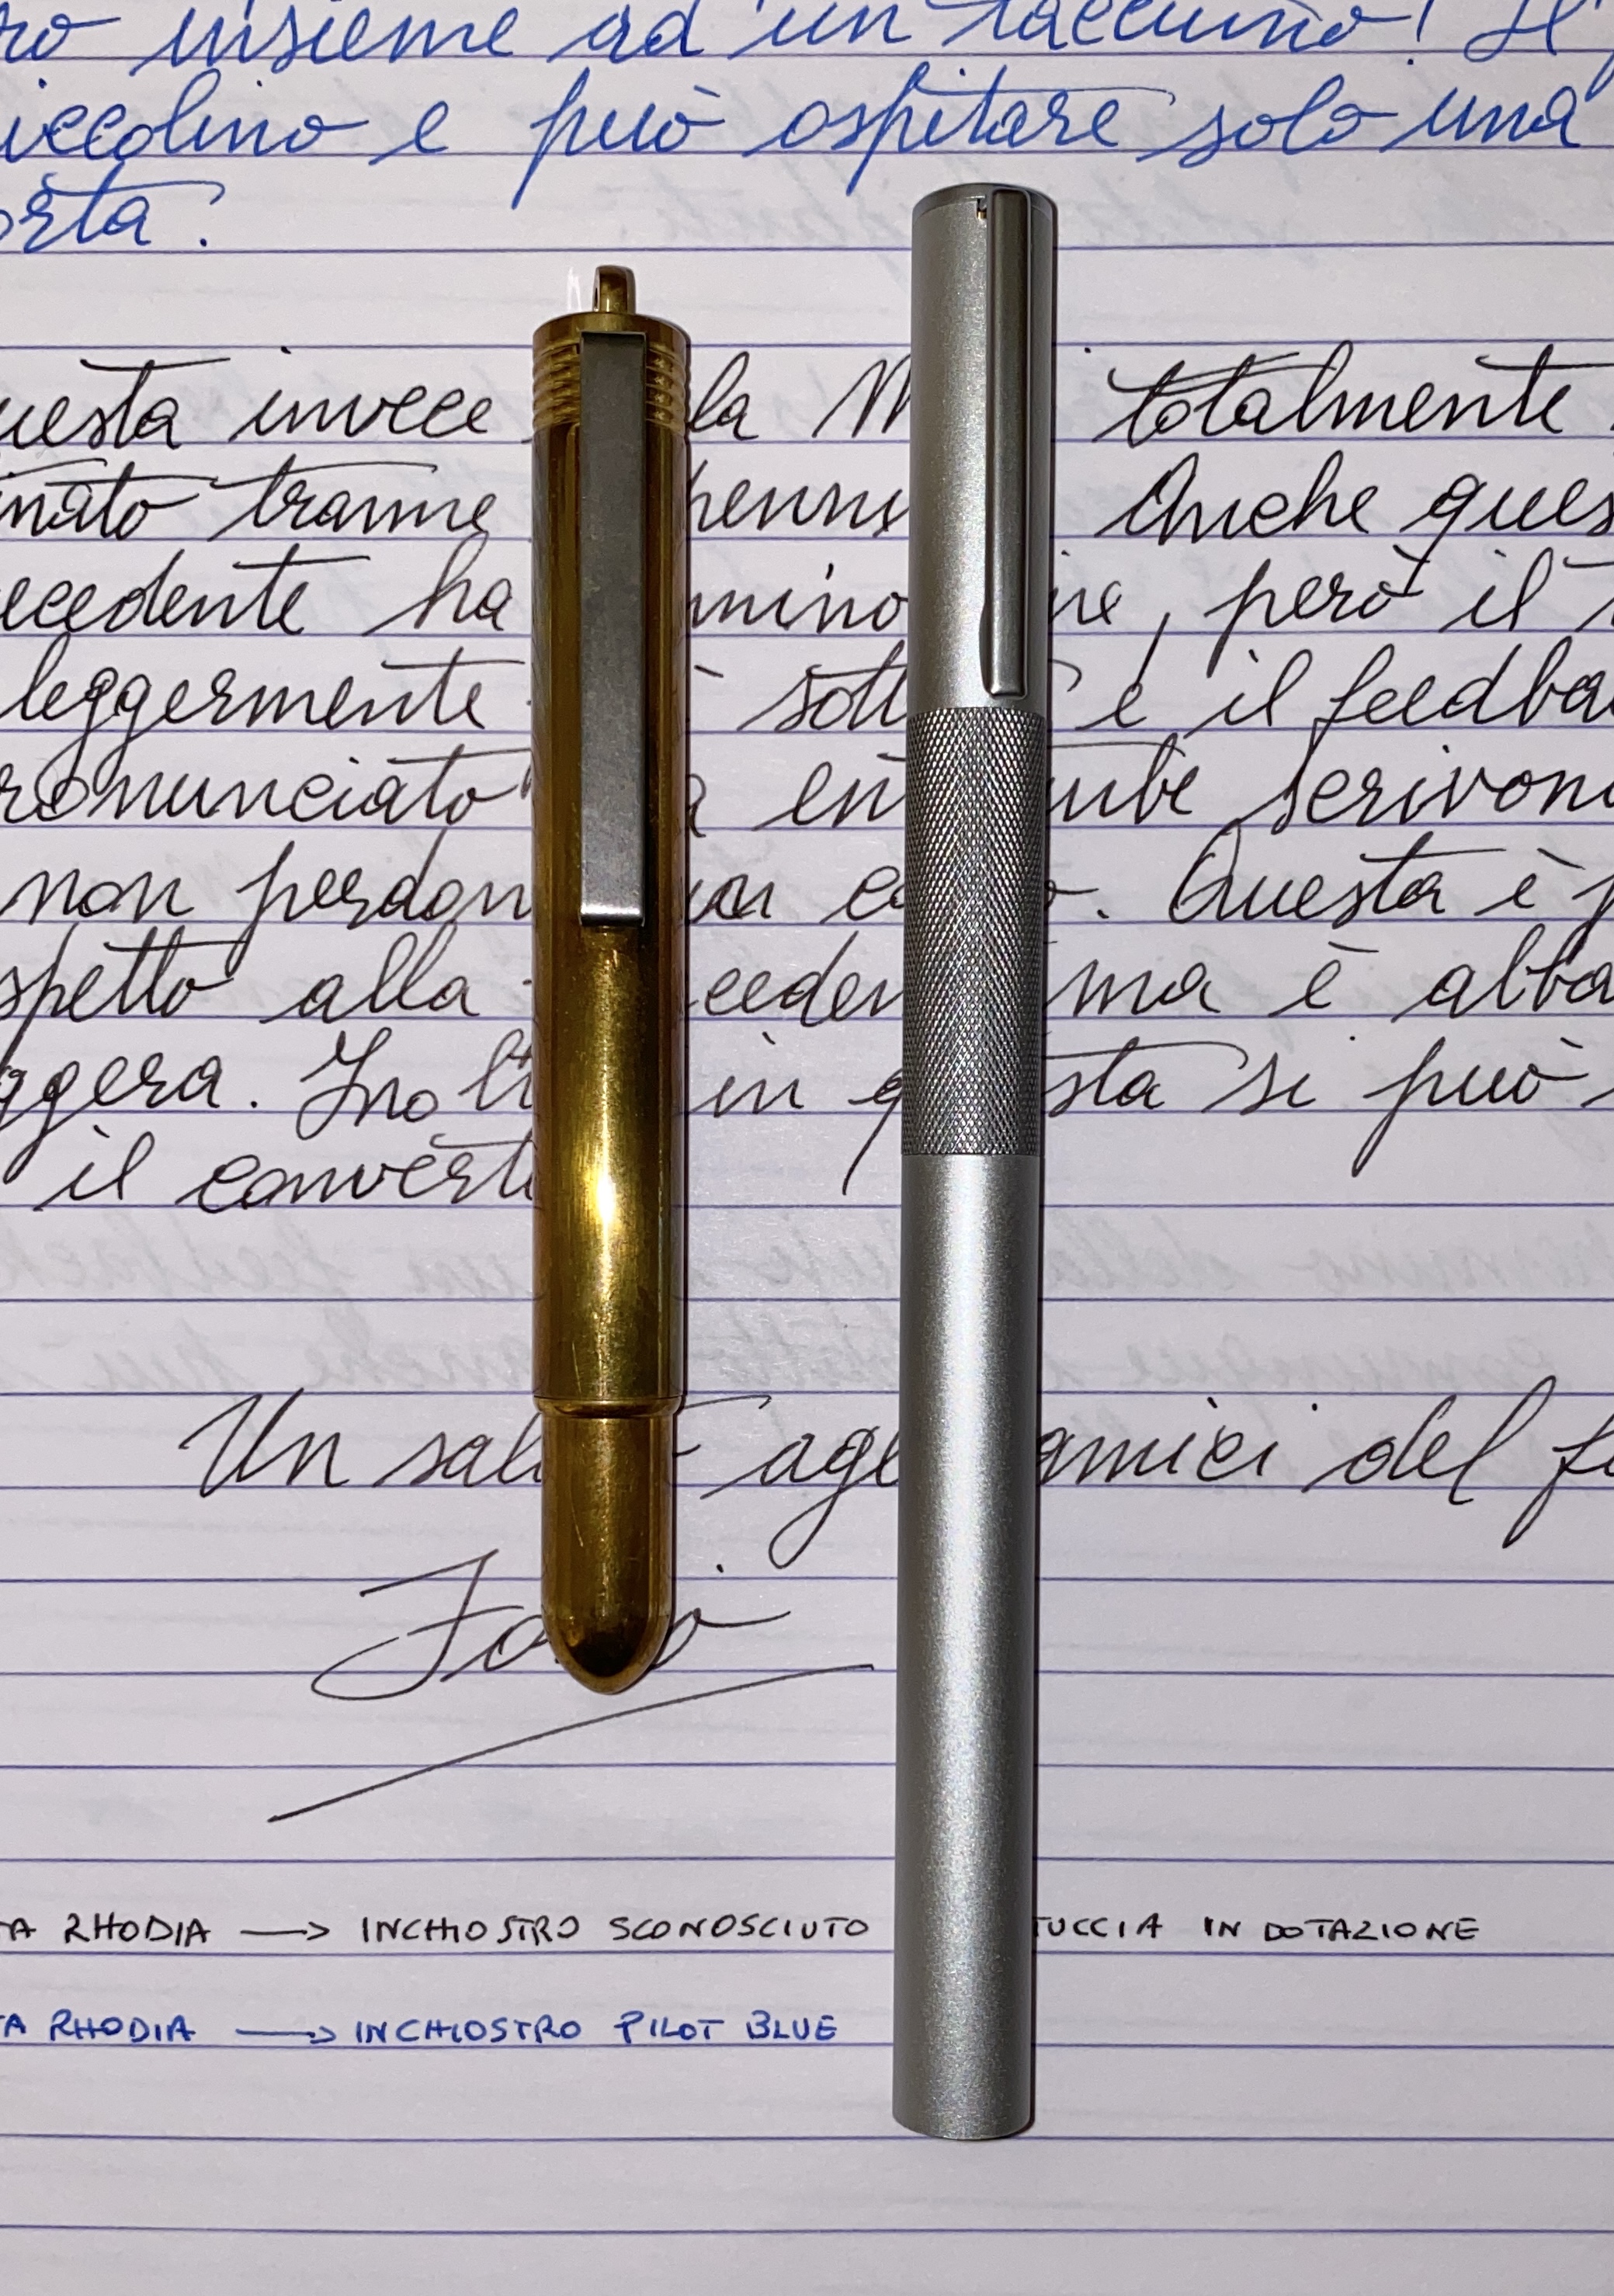 ro insieme ad un taccuino! Il
iccolino e può ospitare solo una
orta.
uesta invece la M totalmente
inato tranne penni Anche ques
ecedente ha nnino ine, però il
leggermente sott e il feedba
ronunciato en ambe scrivono
non perdon un co o. Questa è p
spetto alla ceden ma è abba
ggera. Inolt in q sta si può
il converti
Un salu agl amici del fo
Fa io
TA RHODIA → INCHIOSTRO SCONOSCIUTO TUCCIA IN DOTAZIONE
TA RHODIA → INCHIOSTRO PILOT BLUE